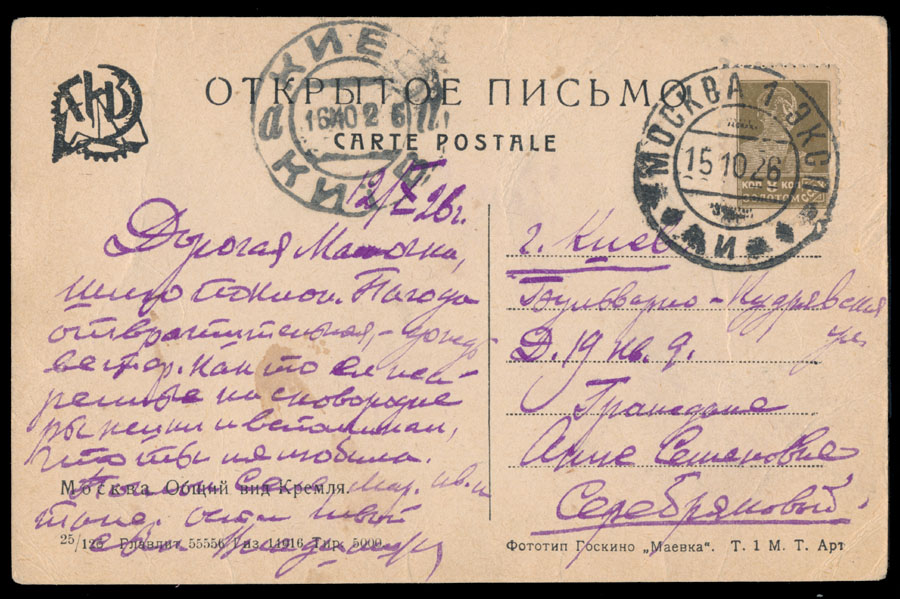 АКВ
ОТКРЫТОЕ ПИСЬМО
CARTE POSTALE
КИЕВ
16 10 26
а
КИЇВ
МОСКВА 1 ЭКСП.
15 10 26
И
КОП 8 КОП
ЗОЛОТОМ
12/X 26 г.
Дорогая
шлю поклон. Погода
отвратительная, - дождь
ветер. Как то ел
на сковородке
и вспоминал,
что ты любила.
г. Киев
Бульварно-Кудрявская
ул.
Д. 19 кв. 9.
Гражданке
Анне Семеновне
Серебряковой.
Москва. Общий вид Кремля.
25/125 Главлит 55556 Гиз 14916 Тир. 5000
Фототип Госкино „Маевка“. Т. 1 М. Т. Арт